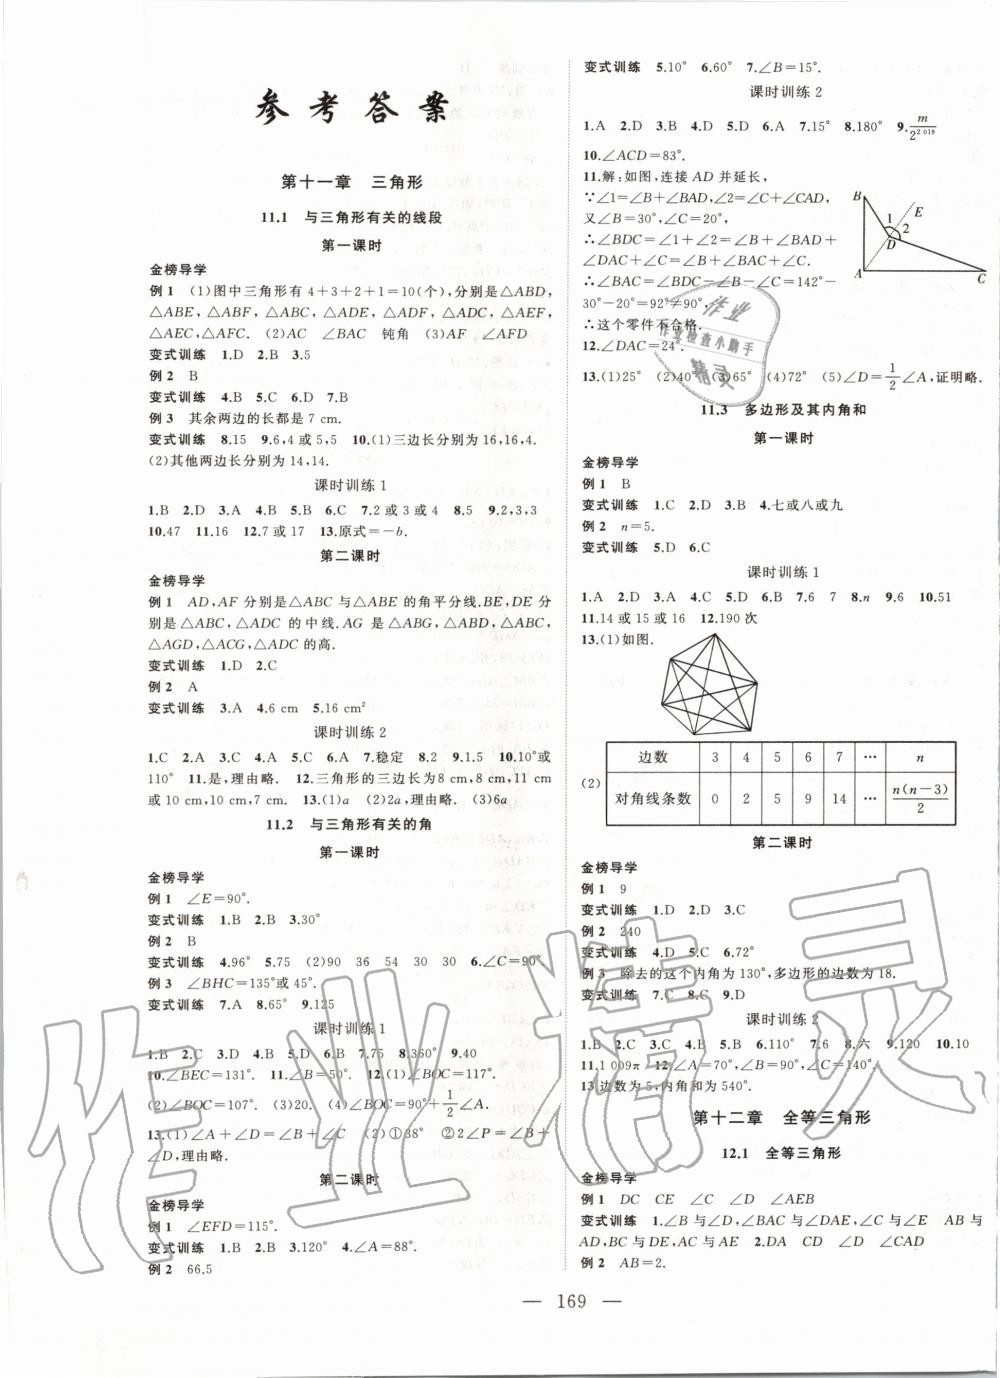 参考答案
第十一章 三角形
11.1 与三角形有关的线段
第一课时
金榜导学
例1 (1)图中三角形有4+3+2+1=10(个),分别是△ABD,
△ABE,△ABF,△ABC,△ADE,△ADF,△ADC,△AEF,
△AEC,△AFC. (2)AC ∠BAC 钝角 (3)AF ∠AFD
变式训练 1.D 2.B 3.5
例2 B
变式训练 4.B 5.C 6.D 7.B
例3 其余两边的长都是7 cm.
变式训练 8.15 9.6,4或5,5 10.(1)三边长分别为16,16,4.
(2)其他两边长分别为14,14.
课时训练1
1.B 2.D 3.A 4.B 5.B 6.C 7.2或3或4 8.5 9.2,3,3
10.47 11.16 12.7或17 13.原式=-b.
第二课时
金榜导学
例1 AD,AF分别是△ABC与△ABE的角平分线.BE,DE分
别是△ABC,△ADC的中线.AG是△ABG,△ABD,△ABC,
△AGD,△ACG,△ADC的高.
变式训练 1.D 2.C
例2 A
变式训练 3.A 4.6 cm 5.16 cm²
课时训练2
1.C 2.A 3.C 4.A 5.C 6.A 7.稳定 8.2 9.1.5 10.10°或
110° 11.是,理由略. 12.三角形的三边长为8 cm,8 cm,11 cm
或10 cm,10 cm,7 cm. 13.(1)a (2)2a,理由略. (3)6a
11.2 与三角形有关的角
第一课时
金榜导学
例1 ∠E=90°.
变式训练 1.B 2.B 3.30°
例2 B
变式训练 4.96° 5.75 (2)90 36 54 30 30 6.∠C=90°
例3 ∠BHC=135°或45°.
变式训练 7.A 8.65° 9.125
课时训练1
1.B 2.B 3.A 4.B 5.D 6.B 7.75 8.360° 9.40
10.∠BEC=131°. 11.∠B=50°. 12.(1)∠BOC=117°.
(2)∠BOC=107°. (3)20. (4)∠BOC=90°+1/2∠A.
13.(1)∠A+∠D=∠B+∠C (2)①38° ②2∠P=∠B+
∠D,理由略.
第二课时
金榜导学
例1 ∠EFD=115°.
变式训练 1.B 2.B 3.120° 4.∠A=88°.
例2 66.5
变式训练 5.10° 6.60° 7.∠B=15°.
课时训练2
1.A 2.D 3.B 4.D 5.D 6.A 7.15° 8.180° 9.m/2^2 019
10.∠ACD=83°.
11.解:如图,连接AD并延长,
∵∠1=∠B+∠BAD,∠2=∠C+∠CAD,
又∠B=30°,∠C=20°,
∴∠BDC=∠1+∠2=∠B+∠BAD+
∠DAC+∠C=∠B+∠BAC+∠C.
∴∠BAC=∠BDC-∠B-∠C=142°-
30°-20°=92°≠90°,
∴这个零件不合格.
B E 1 2 D A C
12.∠DAC=24°.
13.(1)25° (2)40° (3)65° (4)72° (5)∠D=1/2∠A,证明略.
11.3 多边形及其内角和
第一课时
金榜导学
例1 B
变式训练 1.C 2.D 3.B 4.七或八或九
例2 n=5.
变式训练 5.D 6.C
课时训练1
1.A 2.D 3.A 4.C 5.D 6.B 7.6 7 8.n 9.6 10.51
11.14或15或16 12.190次
13.(1)如图.
(2)
边数 3 4 5 6 7 … n
对角线条数 0 2 5 9 14 … n(n-3)/2
第二课时
金榜导学
例1 9
变式训练 1.D 2.D 3.C
例2 240
变式训练 4.D 5.C 6.72°
例3 除去的这个内角为130°,多边形的边数为18.
变式训练 7.C 8.C 9.D
课时训练2
1.B 2.C 3.C 4.B 5.B 6.110° 7.6 8.六 9.120 10.10
11.1 009π 12.∠A=70°,∠B=90°,∠C=140°.
13.边数为5,内角和为540°.
第十二章 全等三角形
12.1 全等三角形
金榜导学
例1 DC CE ∠C ∠D ∠AEB
变式训练 1.∠B与∠D,∠BAC与∠DAE,∠C与∠E AB与
AD,BC与DE,AC与AE 2.DA CD ∠D ∠CAD
例2 AB=2.
— 169 —
作业
作业检查小助手
精灵
作业精灵